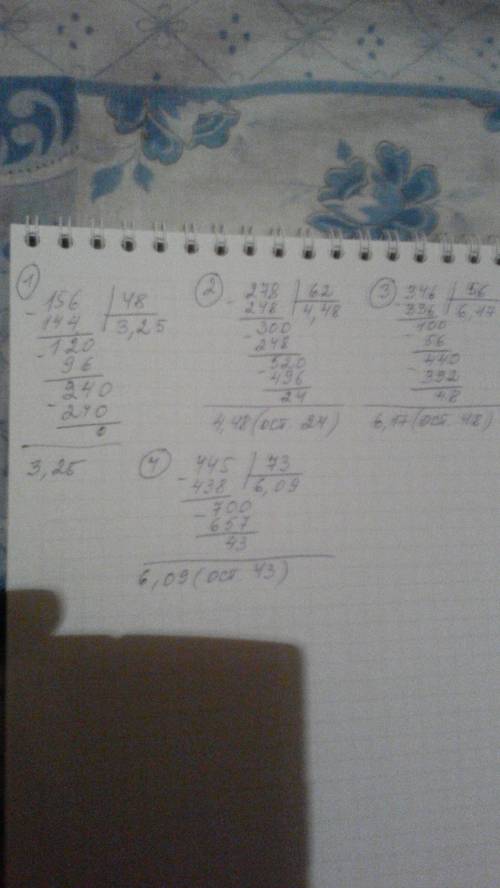 1
- 156 | 48
144 | 3,25
- 120
96
- 240
240
0
3,25
2
- 278 | 62
248 | 4,48
- 300
248
- 520
496
24
4,48 (ост. 24)
3
- 346 | 56
336 | 6,17
- 100
56
- 440
392
48
6,17 (ост. 48)
4
- 445 | 73
438 | 6,09
- 700
657
43
6,09 (ост. 43)